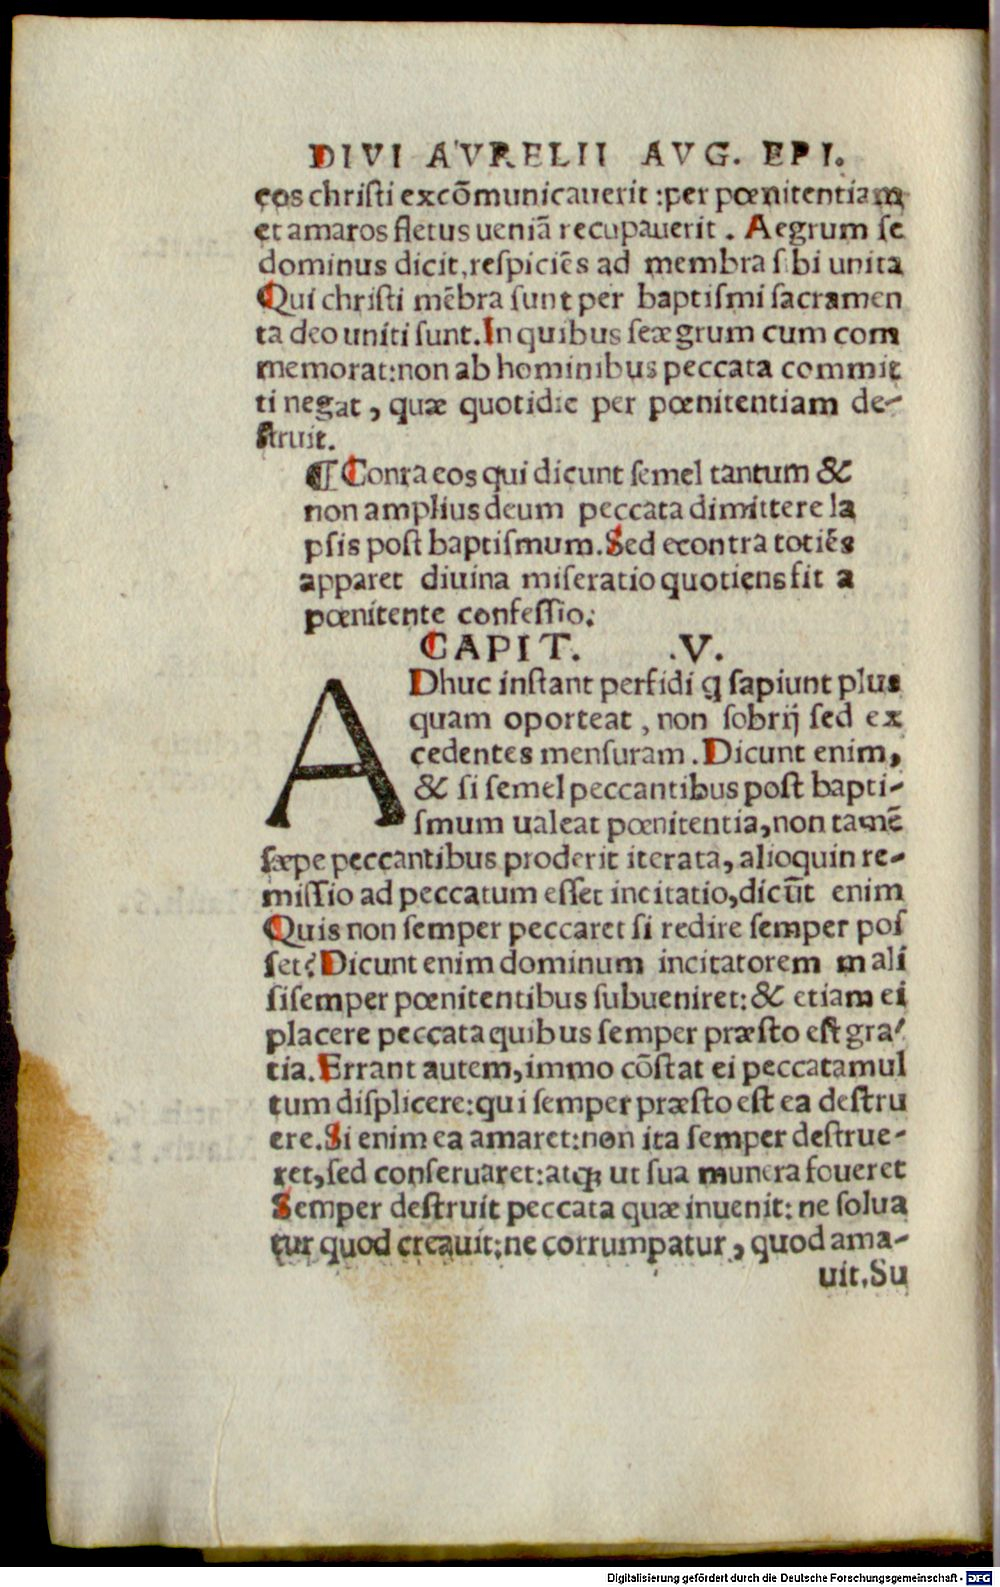 DIVI AVRELII AVG. EPI.
eos chriſti excōmunicauerit :per pœnitentiam
et amaros fletus ueniā recupauerit . Aegrum ſe
dominus dicit,reſpiciēs ad membra ſibi unita
Qui chriſti mēbra ſunt per baptiſmi ſacramen
ta deo uniti ſunt.In quibus ſe ægrum cum com
memorat:non ab hominibus peccata commit
ti negat , quæ quotidie per pœnitentiam de-
ſtruit.
¶ Contra eos qui dicunt ſemel tantum &
non amplius deum peccata dimittere la
pſis poſt baptiſmum.Sed econtra totiēs
apparet diuina miſeratio quotiens fit a
pœnitente confeſſio:
CAPIT. .V.
ADhuc inſtant perfidi q̄ ſapiunt plus
quam oporteat , non ſobrij ſed ex
cedentes menſuram . Dicunt enim,
& ſi ſemel peccantibus poſt bapti-
ſmum ualeat pœnitentia,non tamē
ſæpe peccantibus proderit iterata, alioquin re-
miſſio ad peccatum eſſet incitatio,dicūt enim
Quis non ſemper peccaret ſi redire ſemper poſ
ſet? Dicunt enim dominum incitatorem mali
ſi ſemper pœnitentibus ſubueniret: & etiam ei
placere peccata quibus ſemper præſto eſt gra-
tia. Errant autem,immo cōſtat ei peccata mul
tum diſplicere:qui ſemper præſto eſt ea deſtru
ere.Si enim ea amaret:non ita ſemper deſtrue-
ret,ſed conſeruaret:atqꝫ ut ſua munera foueret
Semper deſtruit peccata quæ inuenit: ne ſolua
tur quod creauit:ne corrumpatur , quod ama-
uit.Su
Digitalisierung gefördert durch die Deutsche Forschungsgemeinschaft - DFG